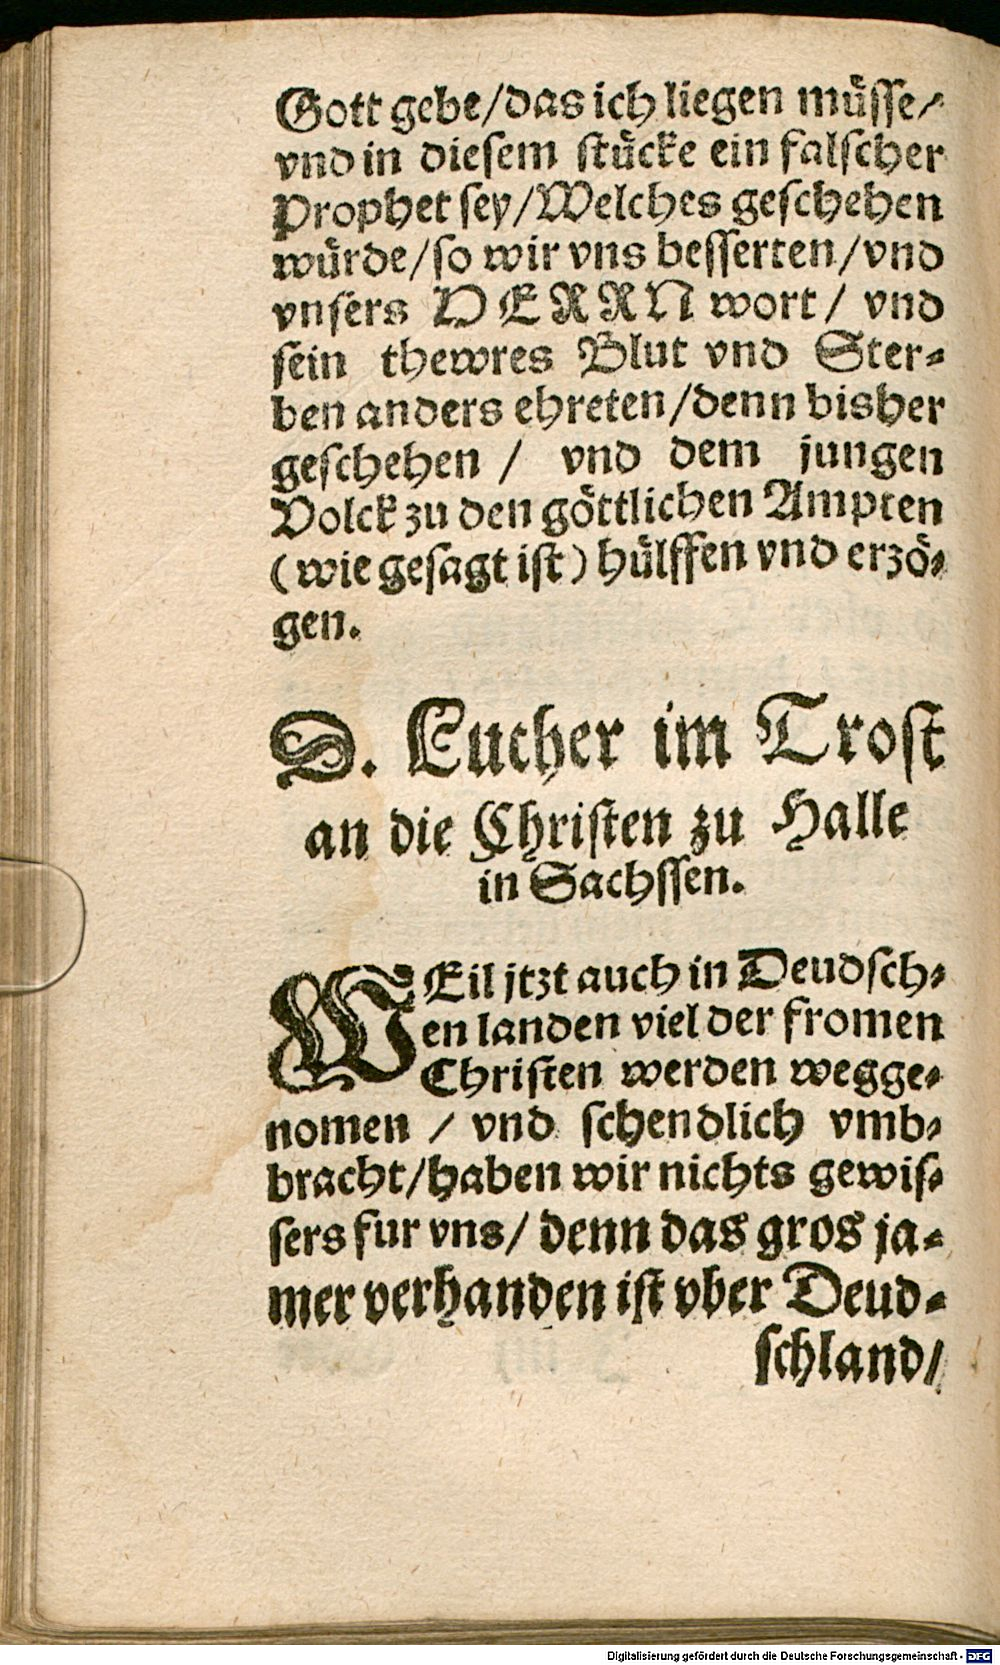 Gott gebe/das ich liegen müſſe/
vnd in dieſem ſtücke ein falſcher
Prophet ſey/Welches geſchehen
würde/ſo wir vns beſſerten/vnd
vnſers HERRN wort/ vnd
ſein thewres Blut vnd Ster-
ben anders ehreten/denn bisher
geſchehen / vnd dem jungen
Volck zu den göttlichen Ampten
(wie geſagt iſt) hülffen vnd erzö-
gen.
D. Luther im Troſt
an die Chriſten zu Halle
in Sachſſen.
WEil jtzt auch in Deudſch-
en landen viel der fromen
Chriſten werden wegge-
nomen / vnd ſchendlich vmb-
bracht/haben wir nichts gewiſ-
ſers fur vns/ denn das gros ja-
mer verhanden iſt vber Deud-
ſchland/
Digitalisierung gefördert durch die Deutsche Forschungsgemeinschaft - DFG